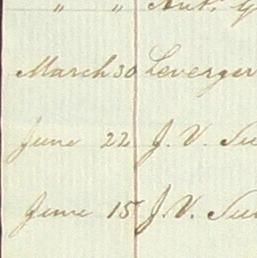 " "
March 30 Leverger
June 22 J. V.
June 15 J. V.